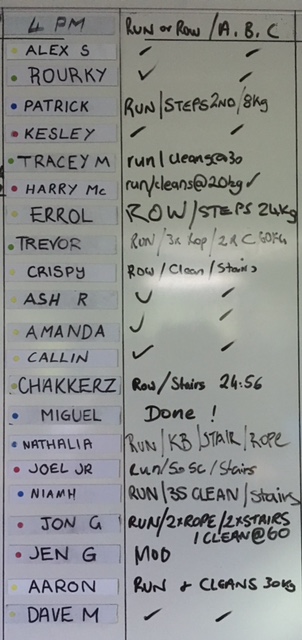 4 PM RUN or ROW / A. B. C
ALEX S ✓ ✓
ROURKY ✓ ✓
PATRICK RUN/STEPS 2ND/8kg
KESLEY ✓ ✓
TRACEY M run/cleans@30
HARRY Mc run/cleans@20kg ✓
ERROL ROW/STEPS 24kg
TREVOR RUN/3x Rop/2R C 60KG
CRISPY Row/Clean/Stairs
ASH R ✓ ✓
AMANDA ✓ ✓
CALLIN ✓ ✓
CHAKKERZ Row/Stairs 24:56
MIGUEL Done !
NATHALIA RUN/KB/STAIR/ROPE
JOEL JR Run/50 Sc/Stairs
NIAMH RUN/35 CLEAN/Stairs
JON G RUN/2xROPE/2xSTAIRS
/CLEAN@60
JEN G MOD
AARON RUN & CLEANS 30kg
DAVE M ✓ ✓